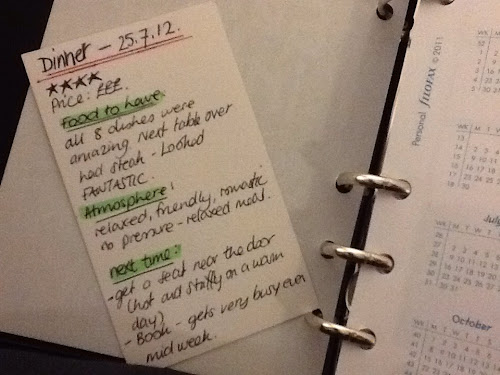 Dinner - 25.7.12.
★★★★
Price: £££.
Food to have:
all 8 dishes were
amazing. Next table over
had steak - Looked
FANTASTIC.
Atmosphere:
relaxed, friendly, romantic
no pressure - relaxed meal.
next time:
- get a seat near the door
(hot and stuffy on a warm
day)
- Book - gets very busy even
mid week.
Personal filofax © 2011
July
October